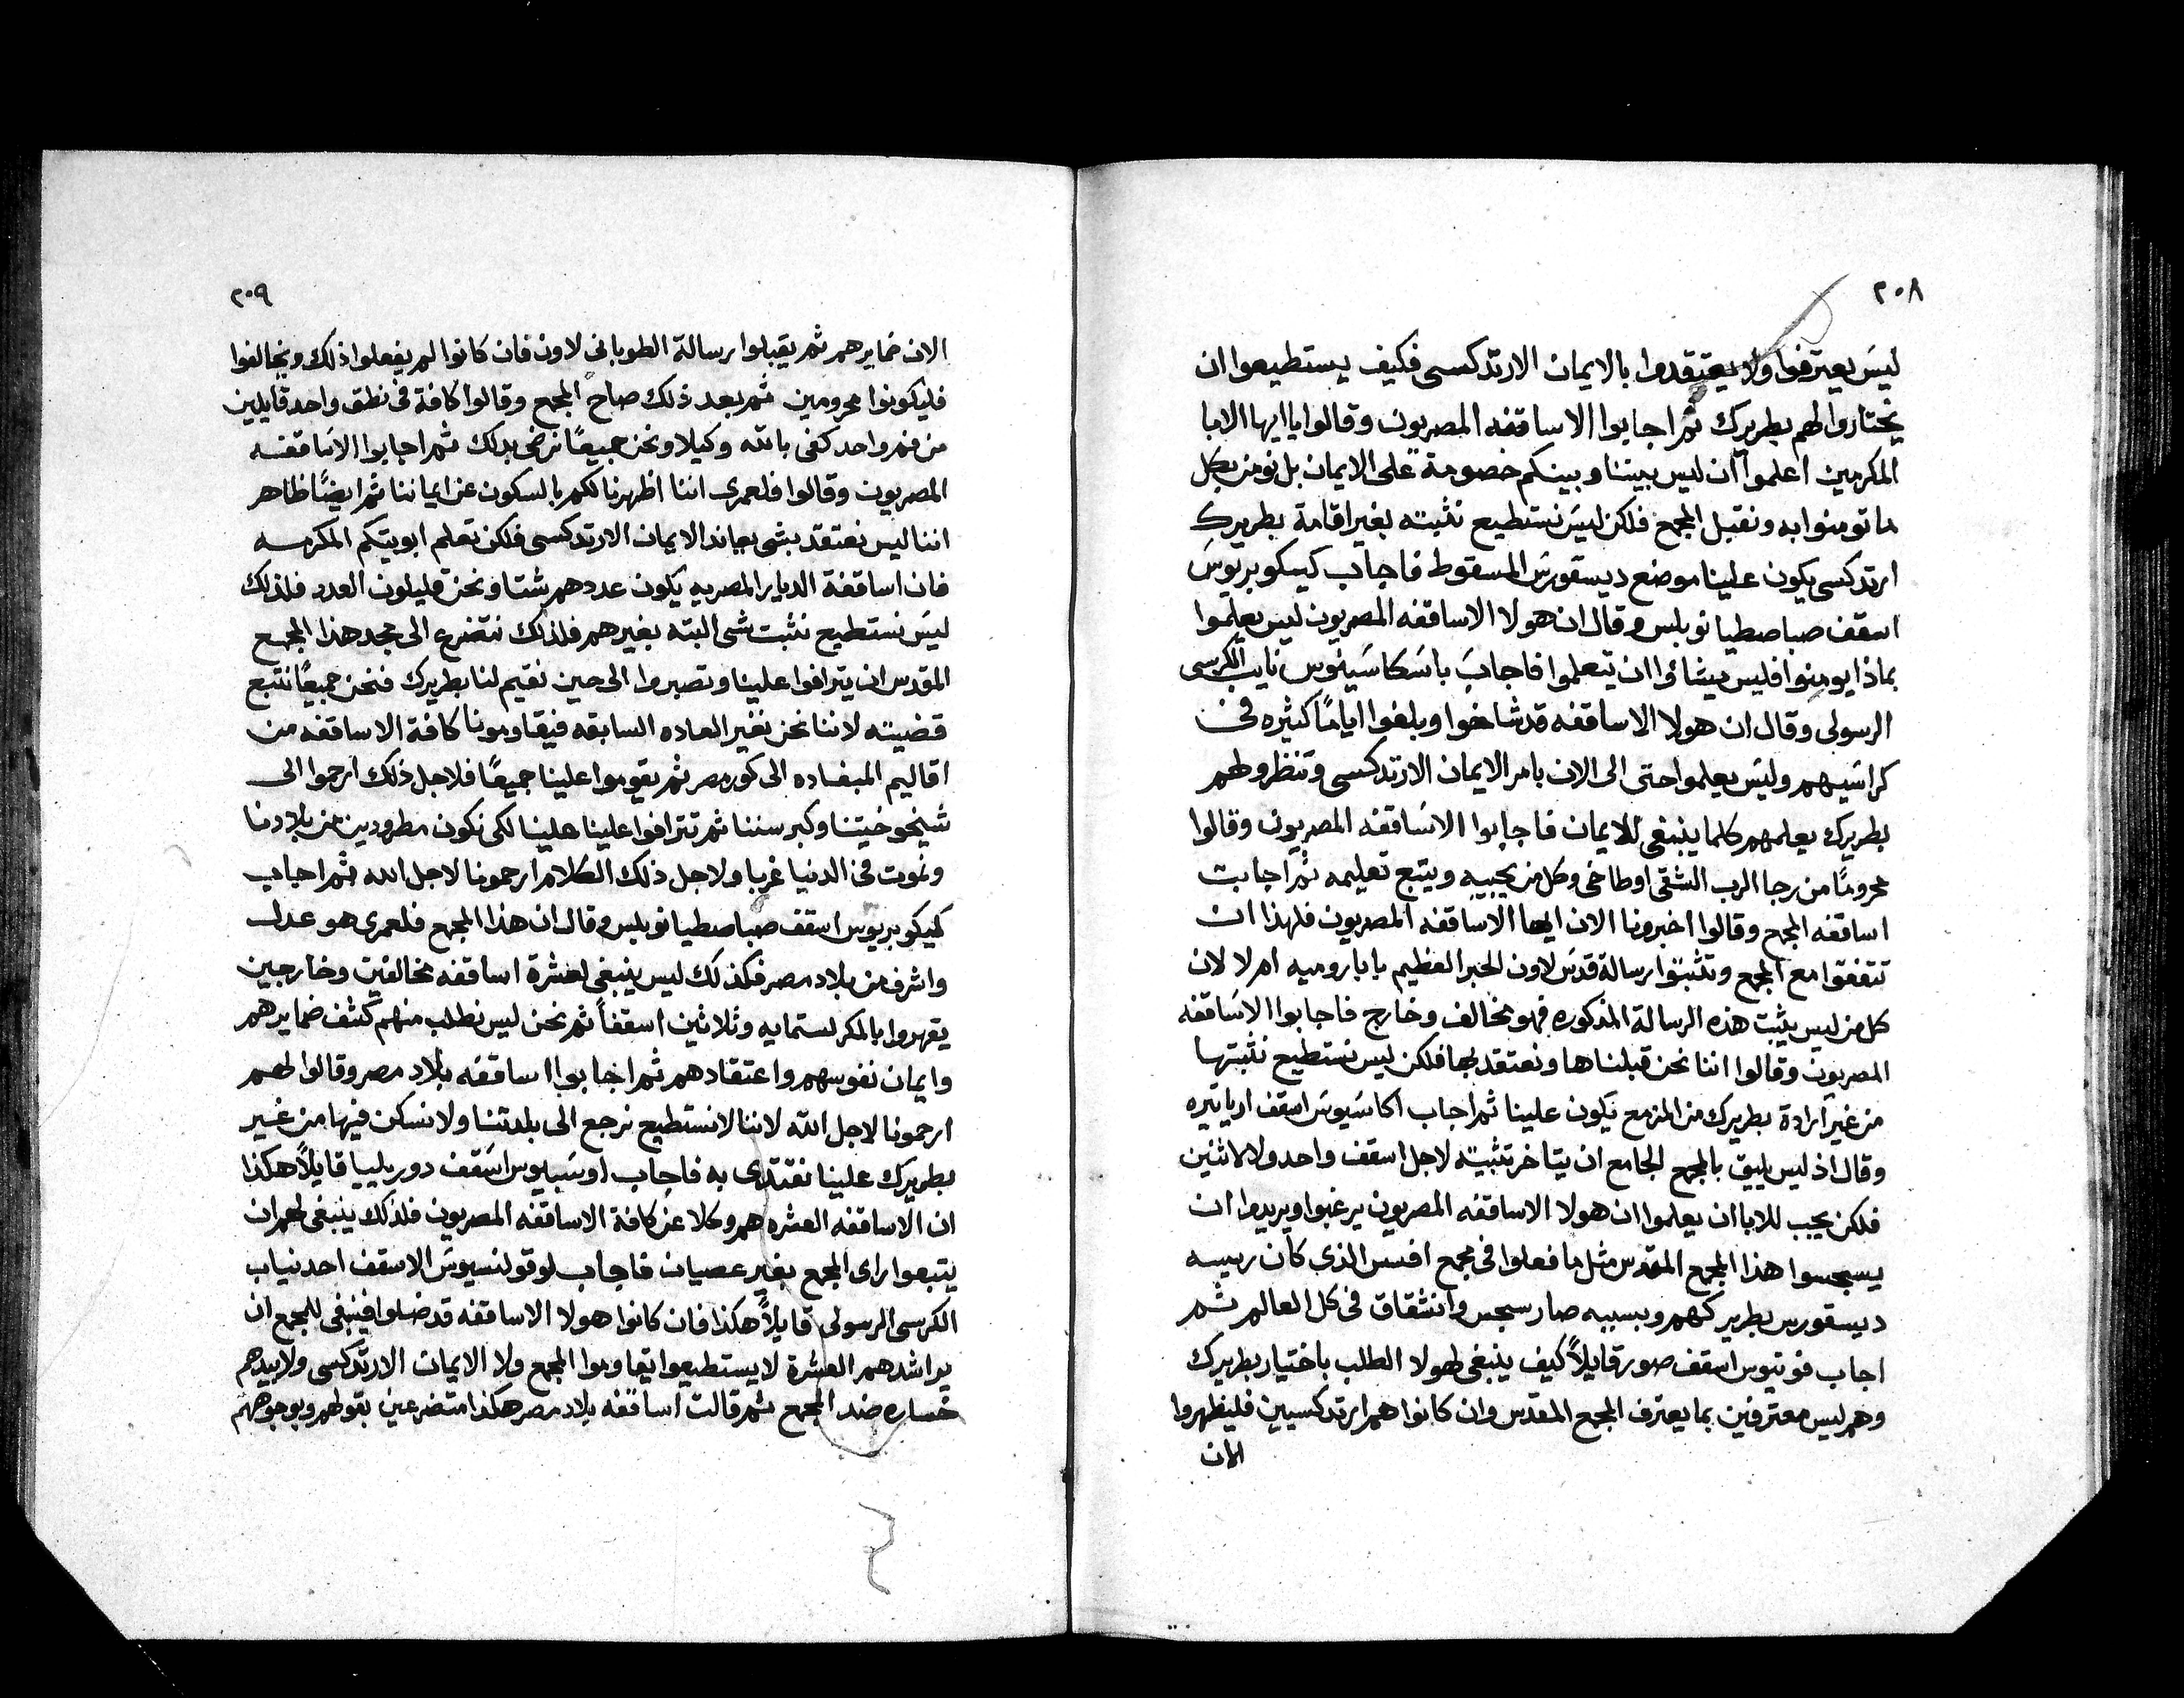 ٢٠٨
ليس يعترفوا ولا يعتقدوا بالايمان الارتدكسى فكيف يستطيعوا ان
يختاروا لهم بطريرك ثم اجابوا الاساقفه المصريون وقالوا يا ايها الابا
المكرمين اعلموا ان ليس بيننا وبينكم خصومة على الايمان بل نومن بكل
ما تومنوا به ونقبل المجمع فلكن ليس نستطيع نثبته بغير اقامة بطريرك
ارتدكسى يكون علينا موضع ديسقورس المسقوط فاجاب كيكوبريوس
اسقف صباصطيانوبلس وقال ان هولا الاساقفه المصريون ليس يعلموا
بماذا يومنوا فليس يشاؤا ان يتعلموا فاجاب باسكاسينوس نايب الكرسى
الرسولى وقال ان هولا الاساقفه قد شاخوا وبلغوا اياما كثيره فى
كراسيهم وليس يعلموا حتى الى الان بامر الايمان الارتدكسى وتنظروا لهم
بطريرك يعلمهم كلما ينبغى للايمان فاجابوا الاساقفه المصريون وقالوا
محروما من رجا الرب الشقى اوطاخى وكل من يحبيه ويتبع تعليمه ثم اجابت
اساقفه المجمع وقالوا اخبرونا الان ايها الاساقفه المصريون فلهذا ان
تتفقوا مع المجمع وتثبتوا رسالة قدس لاون الحبر العظيم بابا روميه ام لا لان
كل من ليس يثبت هذه الرسالة المذكوره فهو مخالف وخارج فاجابوا الاساقفه
المصريون وقالوا اننا نحن قبلناها ونعتقد بها فلكن ليس نستطيع نثبتها
من غير ارادة بطريرك من المزمع يكون علينا ثم اجاب اكاسيوس اسقف ارياتيره
وقال اذ ليس يليق بالمجمع الجامع ان يتاخر تثبيته لاجل اسقف واحد ولا لاثنين
فلكن يجب للابا ان يعلموا ان هولا الاساقفه المصريون يرغبوا ويريدوا ان
يسجسوا هذا المجمع المقدس مثل ما فعلوا فى مجمع افسس الذى كان رييسه
ديسقورس بطريركهم وبسببه صار سجس وانشقاق فى كل العالم ثم
اجاب فوتيوس اسقف صور قايلاً كيف ينبغى لهولا الطلب باختيار بطريرك
وهم ليس معترفين بما يعترف المجمع المقدس وان كانوا هم ارتدكسيين فليظهروا
الان
٢٠٩
الان ضمايرهم ثم يقبلوا رسالة الطوبانى لاون فان كانوا لم يفعلوا ذلك ويخالفوا
فليكونوا محرومين ثم بعد ذلك صاح المجمع وقالوا كافة فى نطق واحد قايلين
من فم واحد كفى بالله وكيلا ونحن جميعًا نرضى بذلك ثم اجابوا الاساقفه
المصريون وقالوا فلعمرى اننا اظهرنا لكم بالسكون عن ايماننا ثم ايضًا ظاهر
اننا ليس نعتقد بشى يعاند الايمان الارتدكسى فلكن تعلم ابويتكم المكرمه
فان اساقفة الديار المصريه يكون عددهم شتا ونحن قليلون العدد فلذلك
ليس نستطيع نثبت شى البته بغيرهم فلذلك نتضرع الى مجد هذا المجمع
المقدس ان يترافوا علينا وتصبروا الى حين نقيم لنا بطريرك فنحن جميعًا نتبع
قضيته لاننا نحن نغير العاده السابقه فيقاومونا كافة الاساقفه من
اقاليم المبعاده الى كور مصر ثم يقوموا علينا جميعًا فلاجل ذلك ارحموا الى
شيخوخيتنا وكبر سننا ثم تترافوا علينا علينا لكى نكون مطرودين من بلادنا
ونموت فى الدنيا غربا ولاجل ذلك الكلام ارحمونا لاجل الله ثم اجاب
كيكوبريوس اسقف صباصطيانوبلس وقال ان هذا المجمع فلعمرى هو عدل
واشرف من بلاد مصر فكذلك ليس ينبغى لعشرة اساقفه مخالفين وخارجين
يقهروا بالمكر لستمايه وثلاثين اسقفاً ثم نحن ليس نطلب منهم كشف ضمايرهم
وايمان نفوسهم واعتقادهم ثم اجابوا اساقفه بلاد مصر وقالوا لهم
ارحمونا لاجل الله لاننا لا نستطيع نرجع الى بلدتنا ولا نسكن فيها من غير
بطريرك علينا نقتدى به فاجاب اوسبيوس اسقف دوريلييا قايلاً هكذا
ان الاساقفه العشره هم وكلا عن كافة الاساقفه المصريون فلذلك ينبغى لهم ان
يتبعوا راى المجمع بغير عصيان فاجاب لوقولنسيوس الاسقف احد نياب
الكرسى الرسولى قايلاً هكذا فان كانوا هولا الاساقفه قد ضلوا فينبغى للمجمع ان
يراشدهم العشرة لا يستطيعوا يقاوموا المجمع ولا الايمان الارتدكسى ولا بيدهم
خساره ضد المجمع ثم قالت اساقفه بلاد مصر هكذا متضرعين بقولهم وبوجوههم